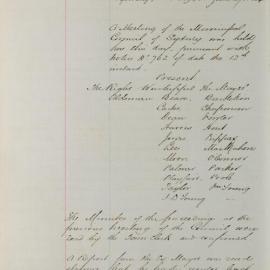 A Meeting of the Municipal
Council of Sydney was held
here this day, pursuant to the
notice No 762 of date the 13th
instant.
Present
The Right Worshipful The Mayor
Alderman Beare
Chapman
Dean Fowler
Harris Hart
Jones Pepper
Lee MacMahon
Moon O'Connor
Palmer Parker
Playfair Poole
Taylor Wm Young
J. D. Young
The Minutes of the proceedings at the
previous Meeting of the Council were
read by the Town Clerk and confirmed.
A Report from the Mayor was read